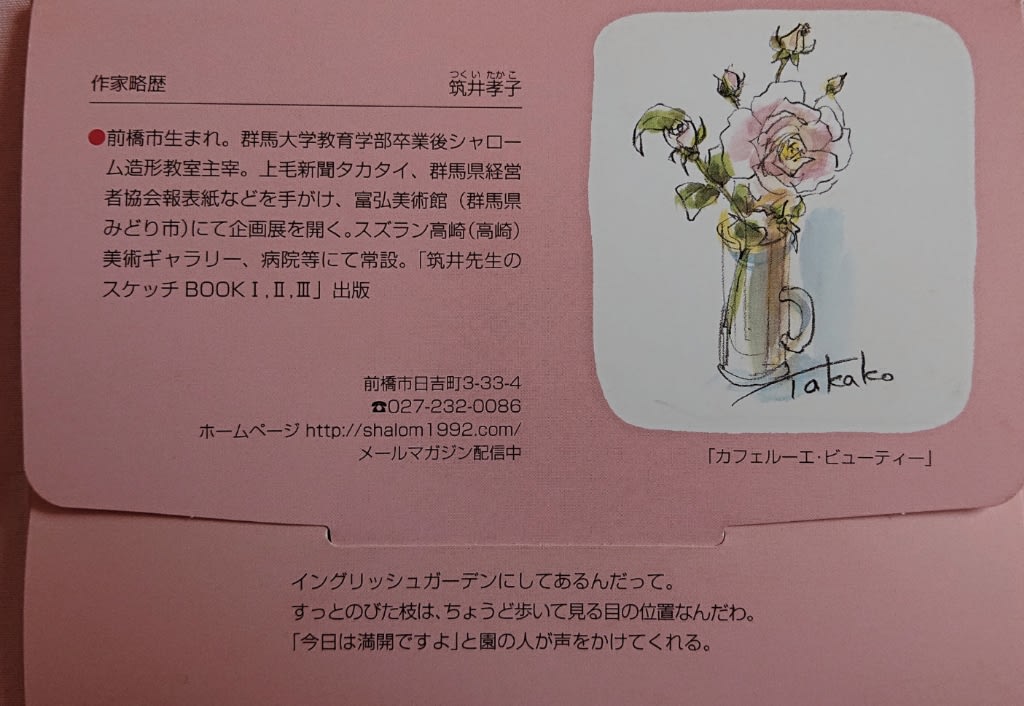 作家略歴
つくい たかこ
筑井孝子
●前橋市生まれ。群馬大学教育学部卒業後シャロー
ム造形教室主宰。上毛新聞タカタイ、群馬県経営
者協会報表紙などを手がけ、富弘美術館（群馬県
みどり市）にて企画展を開く。スズラン高崎（高崎）
美術ギャラリー、病院等にて常設。「筑井先生の
スケッチBOOKⅠ,Ⅱ,Ⅲ」出版
前橋市日吉町3-33-4
☎027-232-0086
ホームページ http://shalom1992.com/
メールマガジン配信中
Takako
「カフェルーエ・ビューティー」
イングリッシュガーデンにしてあるんだって。
すっとのびた枝は、ちょうど歩いて見る目の位置なんだわ。
「今日は満開ですよ」と園の人が声をかけてくれる。